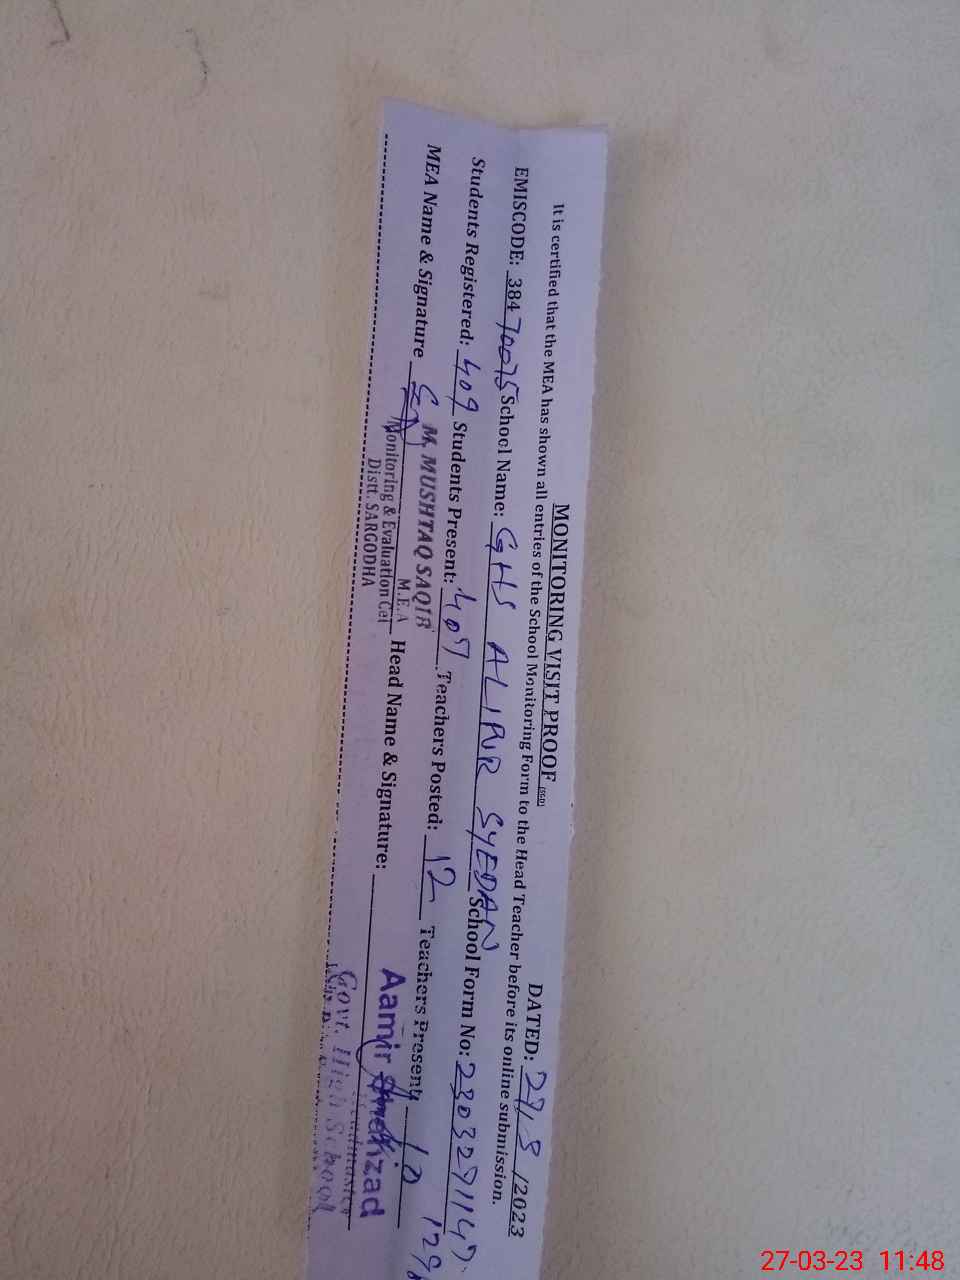 MONITORING VISIT PROOF (SGD) DATED: 27/3/2023
It is certified that the MEA has shown all entries of the School Monitoring Form to the Head Teacher before its online submission.
EMISCODE: 38470075 School Name: GHS ALIPUR SYEDAN School Form No:
Students Registered: 409 Students Present: Teachers Posted: 12 Teachers Present 10
MEA Name & Signature M. MUSHTAQ SAQIB Head Name & Signature: Aamir Shehzad
M.E.A Headmaster
Monitoring & Evaluation Cel Govt. High School
Distt. SARGODHA
27-03-23 11:48